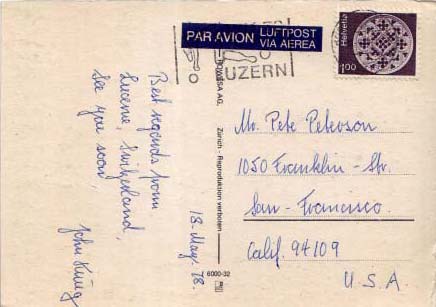 PAR AVION LUFTPOST
VIA AEREA
LUZERN
Helvetia
1.00
Best regards from
Lucerne, Switzerland,
See you soon,
John
18-May-78.
AG, Zürich - Reproduktion verboten
6000-32
Mr. Pete Peterson
1050 Franklin-Str.
San-Francisco
Calif. 94109
U.S.A.